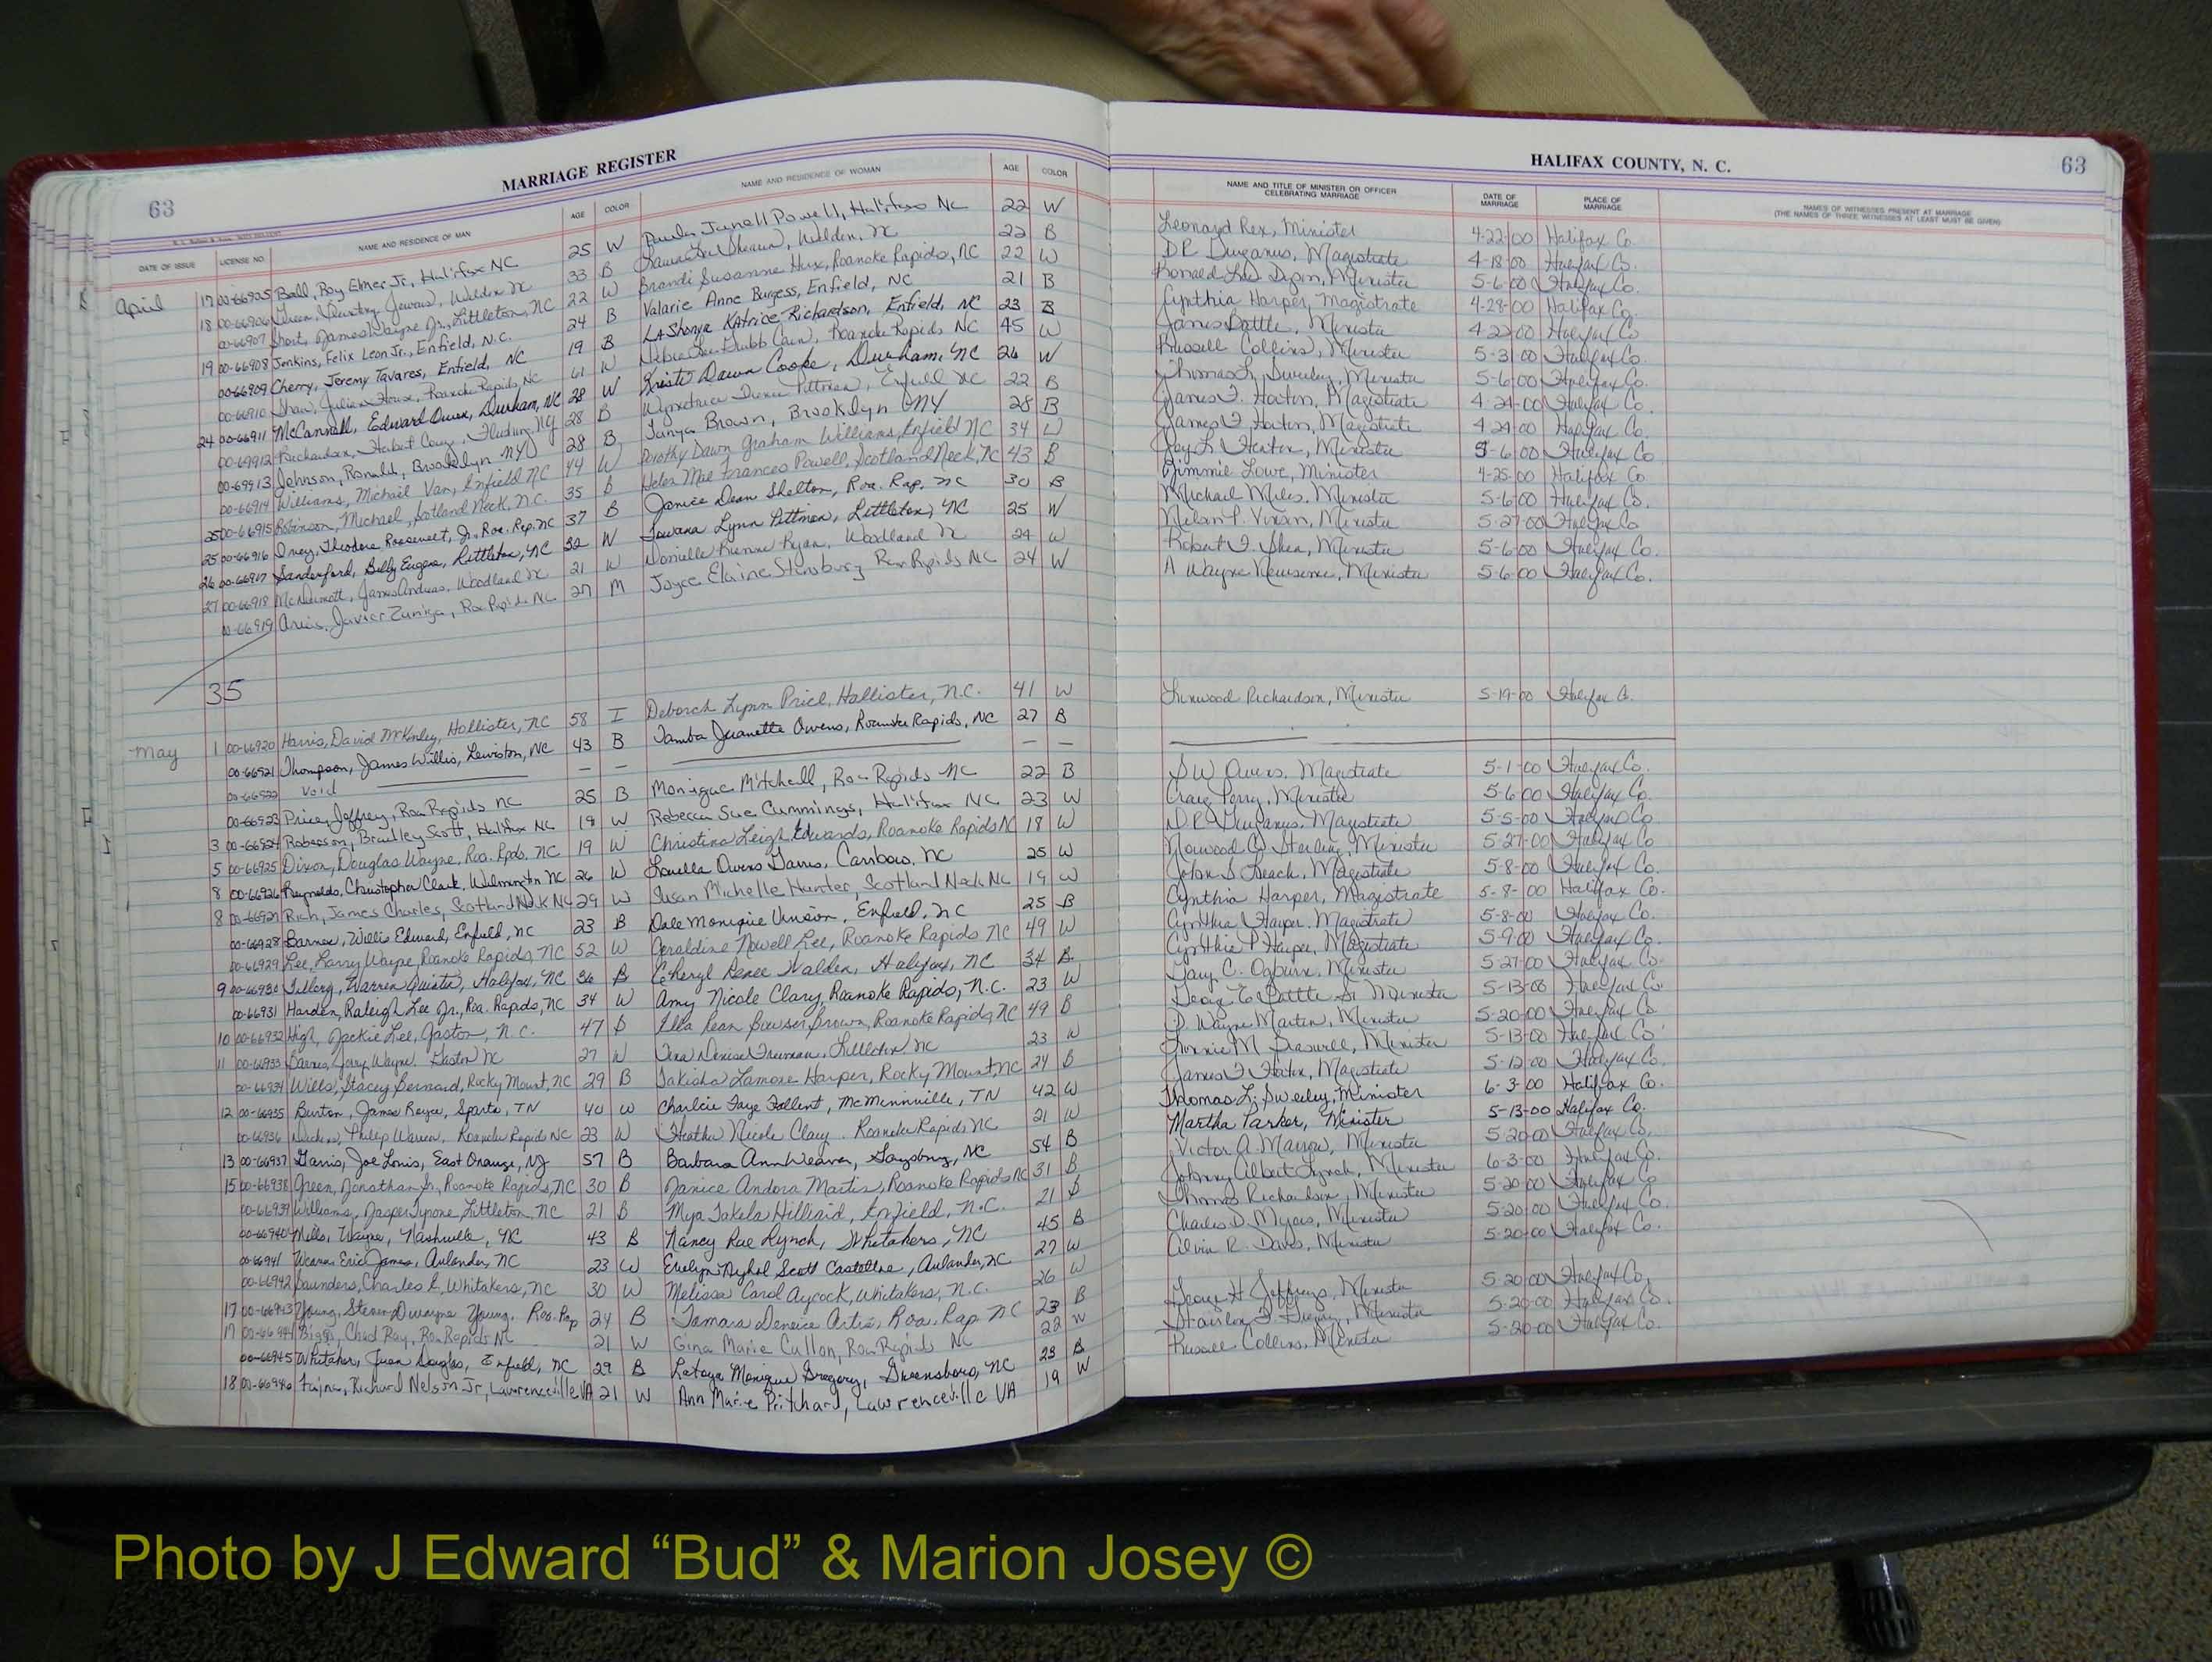 63
MARRIAGE REGISTER
DATE OF ISSUE LICENSE NO. NAME AND RESIDENCE OF MAN AGE COLOR NAME AND RESIDENCE OF WOMAN AGE COLOR
April 17 00-66905 Ball, Roy Elmer Jr, Halifax NC 25 W Paula Janell Powell, Halifax NC 22 W
18 00-66906 Green, Jawan, Weldon NC 33 B Weldon, NC 22 B
00-66907 Short, James Wayne Jr, Littleton, NC 22 W Brandi Susanne Hux, Roanoke Rapids, NC 22 W
19 00-66908 Jenkins, Felix Leon Jr., Enfield, N.C. 24 B Valarie Anne Burgess, Enfield, NC 21 B
00-66909 Cherry, Jeremy Tavares, Enfield, NC 19 B LaShonya Katrice Richardson, Enfield, NC 23 B
00-66910 Shaw, Julian House, Roanoke Rapids, NC 61 W Debra Lee Grubb Cain, Roanoke Rapids NC 45 W
24 00-66911 McCannell, Edward Owen, Durham, NC 28 W Kristi Dawn Cooke, Durham, NC 26 W
00-69912 Richardson, NY 28 B Pittman, Enfield NC 22 B
00-69913 Johnson, Ronald, Brooklyn NY 28 B Tanya Brown, Brooklyn NY 28 B
00-66914 Williams, Michael Van, Enfield NC 44 W Dorothy Dawn Graham Williams, Enfield NC 34 W
25 00-66915 Robinson, Michael, Scotland Neck, N.C. 35 B Helen Mae Frances Powell, Scotland Neck, NC 43 B
25 00-66916 Ivey, Theodore Roosevelt, Jr., Roa. Rap. NC 37 B Janice Dean Shelton, Roa. Rap. NC 30 B
26 00-66917 Sanderford, Billy Eugene, Littleton, NC 32 W Towana Lynn Pittman, Littleton, NC 25 W
27 00-66918 McDermott, James Andrew, Woodland NC 21 W Danielle Ryan, Woodland NC 24 W
00-66919 Arias, Javier Zuniga, Roa Rapids NC 27 M Joyce Elaine Stansbury Roa Rapids NC 24 W
35
May 1 00-66920 Harris, David McKinley, Hollister, NC 58 I Deborah Lynn Price, Hollister, N.C. 41 W
00-66921 Thompson, James Willis, Lewiston, NC 43 B Tamba Juanette Owens, Roanoke Rapids, NC 27 B
00-66922 Void — — — —
00-66923 Price, Jeffrey, Roa Rapids NC 25 B Monique Mitchell, Roa Rapids NC 22 B
3 00-66924 Roberson, Bradley Scott, Halifax NC 19 W Rebecca Sue Cummings, Halifax NC 23 W
5 00-66925 Dixon, Douglas Wayne, Roa. Rpds. NC 19 W Christina Leigh Edwards, Roanoke Rapids NC 18 W
8 00-66926 Reynolds, Christopher Clark, Wilmington NC 26 W Louella Owens Garris, Carrboro, NC 25 W
8 00-66927 Rich, James Charles, Scotland Neck NC 29 W Susan Michelle Hunter, Scotland Neck NC 19 W
00-66928 Barnes, Willie Edward, Enfield, NC 23 B Dale Monique Vinson, Enfield, NC 25 B
00-66929 Lee, Larry Wayne, Roanoke Rapids, NC 52 W Geraldine Nowell Lee, Roanoke Rapids NC 49 W
9 00-66930 Tillery, Warren Halifax, NC 36 B Cheryl Renee Walden, Halifax, NC 34 B
00-66931 Harden, Raleigh Lee Jr., Roa. Rapids, NC 34 W Amy Nicole Clary, Roanoke Rapids, N.C. 23 W
10 00-66932 High, Jackie Lee, Gaston, N.C. 47 B Ella Rean Bowser Brown, Roanoke Rapids, NC 49 B
11 00-66933 Barnes, Jerry Wayne, Gaston NC 27 W Tina Denise Freeman, Littleton NC 23 W
00-66934 Wills, Stacey Bernard, Rocky Mount, NC 29 B Takisha Lamore Harper, Rocky Mount, NC 24 B
12 00-66935 Burton, James Royce, Sparta, TN 40 W Charlcie Faye Follent, McMinnville, TN 42 W
00-66936 Philip Warren, Roanoke Rapids NC 23 W Heather Nicole Clary, Roanoke Rapids, NC 21 W
13 00-66937 Garris, Joe Louis, East Orange, NJ 57 B Barbara Ann Weaver, Gaysburg, NC 54 B
15 00-66938 Green, Jonathan Jr, Roanoke Rapids, NC 30 B Janice Andora Martin, Roanoke Rapids NC 31 B
00-66939 Williams, Jasper Tyrone, Littleton, NC 21 B Mya Takela Hilliard, Enfield, N.C. 21 B
00-66940 Mills, Wayne, Nashville, NC 43 B Nancy Rae Lynch, Whitakers, NC 45 B
00-66941 Eric James, Aulander, NC 23 W Evelyn Scott Castelloe, Aulander, NC 27 W
00-66942 Saunders, Charles E, Whitakers, NC 30 W Melissa Carol Aycock, Whitakers, N.C. 26 W
17 00-66943 Young, Steven Dwayne Young, Roa. Rap 24 B Tamara Deneice Artis, Roa. Rap. NC 23 B
17 00-66944 Biggs, Chad Ray, Roa Rapids NC 21 W Gina Marie Cullom, Roa Rapids NC 22 W
00-66945 Whitaker, Juan Douglas, Enfield, NC 29 B Latoya Monique Gregory, Greensboro, NC 23 B
18 00-66946 Richard Nelson Jr, Lawrenceville VA 21 W Ann Marie Pritchard, Lawrenceville VA 19 W
HALIFAX COUNTY, N. C. 63
NAME AND TITLE OF MINISTER OR OFFICER CELEBRATING MARRIAGE DATE OF MARRIAGE PLACE OF MARRIAGE NAMES OF WITNESSES PRESENT AT MARRIAGE (THE NAMES OF THREE WITNESSES AT LEAST MUST BE GIVEN)
Leonard Rex, Minister 4-22-00 Halifax Co.
DR Gurganus, Magistrate 4-18-00 Halifax Co.
Ronald Lee Dixon, Minister 5-6-00 Halifax Co.
Cynthia Harper, Magistrate 4-28-00 Halifax Co.
James Battle, Minister 4-22-00 Halifax Co
Russell Collins, Minister 5-3-00 Halifax Co.
Thomas L. Sweeley, Minister 5-6-00 Halifax Co.
James F. Horton, Magistrate 4-24-00 Halifax Co.
James F Horton, Magistrate 4-24-00 Halifax Co.
Ray L. Minister 5-6-00 Halifax Co
Jimmie Lowe, Minister 4-25-00 Halifax Co
Michael Miles, Minister 5-6-00 Halifax Co.
Milan P. Vivian, Minister 5-27-00 Halifax Co
Robert F. Shea, Minister 5-6-00 Halifax Co.
A Wayne Newsome, Minister 5-6-00 Halifax Co.
Linwood Richardson, Minister 5-19-00 Halifax Co.
S W Owens, Magistrate 5-1-00 Halifax Co.
Craig Perry, Minister 5-6-00 Halifax Co.
D R Gurganus, Magistrate 5-5-00 Halifax Co
Norwood Minister 5-27-00 Halifax Co
John S Leach, Magistrate 5-8-00 Halifax Co.
Cynthia Harper, Magistrate 5-8-00 Halifax Co.
Cynthia Harper, Magistrate 5-8-00 Halifax Co.
Cynthia P Harper, Magistrate 5-9-00 Halifax Co.
Gary C. Ogburn, Minister 5-27-00 Halifax Co.
Battle Sr Minister 5-13-00 Halifax Co.
D. Wayne Martin, Minister 5-20-00 Halifax Co.
M Braswell, Minister 5-13-00 Halifax Co.
James F Horton, Magistrate 5-12-00 Halifax Co.
Thomas L. Sweeley, Minister 6-3-00 Halifax Co.
Martha Parker, Minister 5-13-00 Halifax Co.
Victor A. Marrow, Minister 5-20-00 Halifax Co.
Johnny Albert Lynch, Minister 6-3-00 Halifax Co.
Thomas Richardson, Minister 5-20-00 Halifax Co
Charles D. Myers, Minister 5-20-00 Halifax Co.
Alvin R. Davis, Minister 5-20-00 Halifax Co.
George H Jeffreys, Minister 5-20-00 Halifax Co.
Minister 5-20-00 Halifax Co.
Russell Collins, Minister 5-20-00 Halifax Co.
Photo by J Edward “Bud” & Marion Josey ©